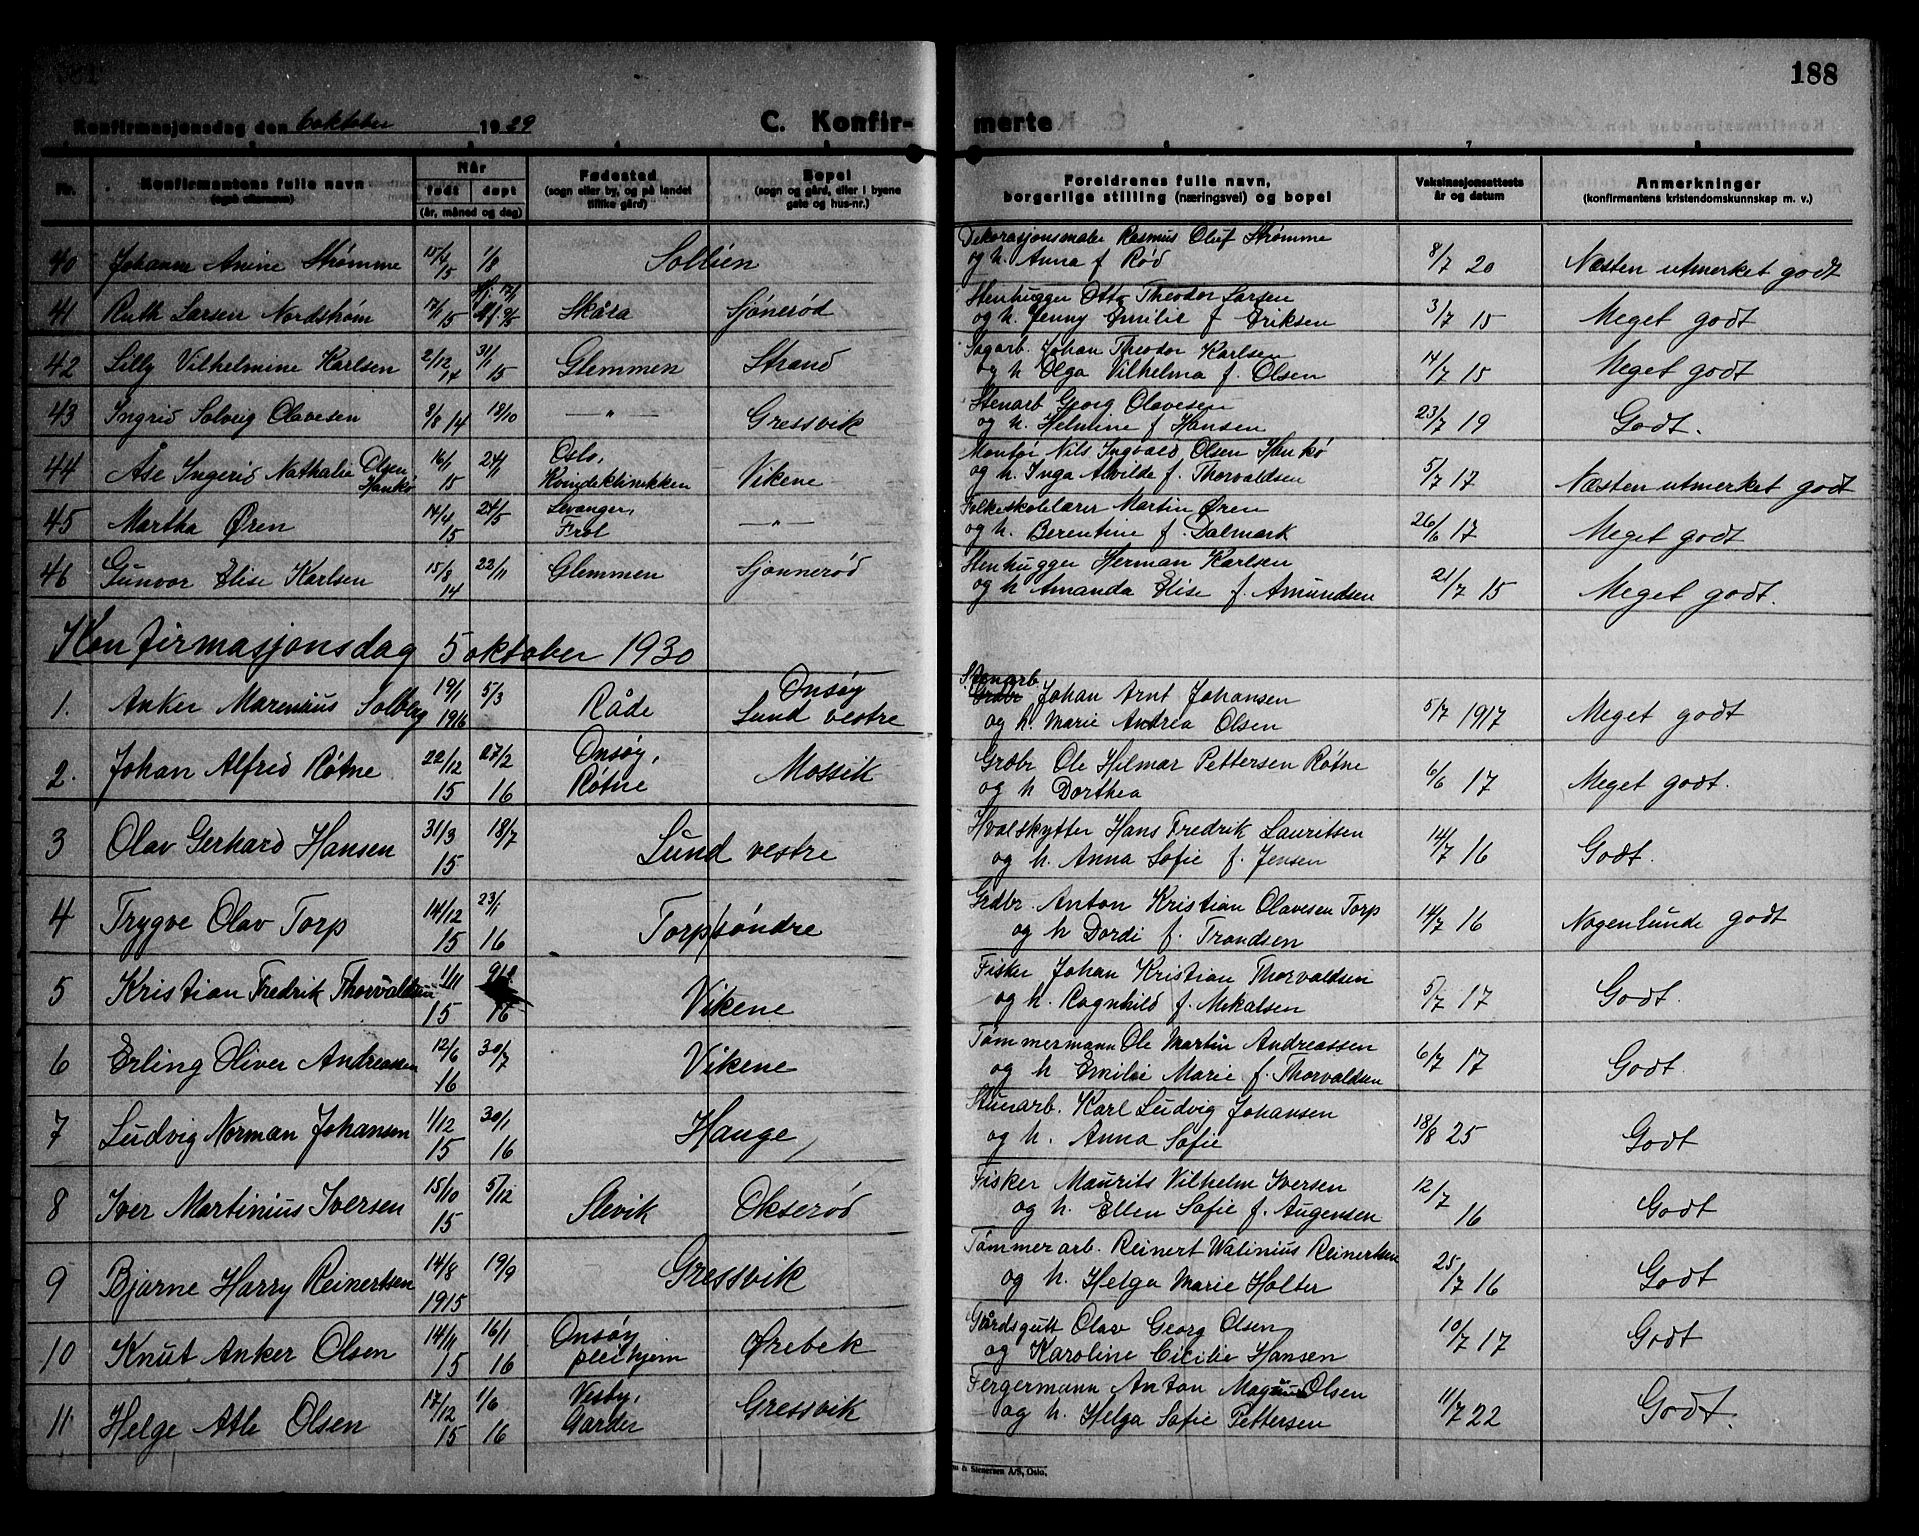 188
Konfirmasjonsdag den 6 oktober 1929 C. Konfirmerte
Nr. Konfirmantens fulle navn (også etternavn) Når født døpt (år, måned og dag) Fødested (sogn eller by, og på landet tillike gård) Bopel (sogn og gård, eller i byene gate og hus-nr.) Foreldrenes fulle navn, borgerlige stilling (næringsvei) og bopel Vaksinasjonsattests år og datum Anmerkninger (konfirmantens kristendomskunnskap m. v.)
40 Johanne Anine Strømme 15/6 15 1/8 Solbien Dekorasjonsmaler Rasmus Oluf Strømme
og h. Anna f Rød 8/7 20 Næsten utmerket godt
41 Ruth Larsen Nordstrøm 17/1 15 Skåra Sjønerød Stenhugger Otto Theodor Larsen
og h. Jenny Emilie f Eriksen 3/7 15 Meget godt
42 Lilly Vilhelmine Karlsen 2/12 14 31/1 15 Glemmen Strand Sagarb. Johan Theodor Karlsen
og h Olga Vilhelma f. Olsen 14/7 15 Meget godt
43 Ingrid Solveig Olavesen 8/8 14 18/10 — " — Gressvik Stenarb Georg Olavesen
og h. Helmine f Hansen 23/7 19 Godt.
44 Åse Ingerid Nathalie Olsen Hankø 16/1 15 24/1 Oslo, Kvindeklinikken Vikene Montør Nils Ingvald Olsen Hankø
og h. Inga Alvilde f. Thorvaldsen 5/7 17 Næsten utmerket godt
45 Martha Øren 14/4 15 24/5 Levanger, Frol — " — Folkeskolelærer Martin Øren
og h. Berentine f. Dalmark 26/6 17 Meget godt
46 Gunvor Elise Karlsen 15/8 14 22/11 Glemmen Sjønnerød Stenhugger Herman Karlsen
og h Amanda Elise f. Amundsen 21/7 15 Meget godt.
Konfirmasjonsdag 5 oktober 1930
1. Anker Marenius Solberg 19/1 1916 5/3 Råde Onsøy Lund vestre Stenarb Grdbr Johan Arnt Johansen
og h. Marie Andrea Olsen 5/7 1917 Meget godt
2. Johan Alfred Røtne 22/12 15 27/2 16 Onsøy, Røtne Mossik Grdbr Ole Hilmar Pettersen Røtne
og h Dorthea 6/6 17 Meget godt.
3 Olav Gerhard Hansen 31/3 15 18/7 Lund vestre Hvalskytter Hans Fredrik Lauritsen
og h. Anna Sofie f. Jensen 14/7 16 Godt.
4 Trygve Olav Torp 14/12 15 23/1 16 Torp søndre Grdbr. Anton Kristian Olavesen Torp
og h Dordi f. Trondsen 14/7 16 Nogenlunde godt
5 Kristian Fredrik Thorvaldsen 1/11 15 16 Vikene Fisker Johan Kristian Thorvaldsen
og h. Ragnhild f. Mikalsen 5/7 17 Godt.
6 Erling Oliver Andreassen 12/6 16 30/7 Vikene Tømmermann Ole Martin Andreassen
og h Emilie Marie f. Thorvaldsen 6/7 17 Godt.
7 Ludvig Norman Johansen 1/12 15 30/1 16 Hauge Stenarb. Karl Ludvig Johansen
og h. Anna Sofie 18/8 25 Godt
8 Iver Martinius Iversen 15/10 15 5/12 Slevik Okserød Fisker Maurits Vilhelm Iversen
og h. Ellen Sofie f. Augensen 12/7 16 Godt
9 Bjarne Harry Reinertsen 14/8 1915 19/9 Gressvik Tømmerarb. Reinert Walinius Reinertsen
og h. Helga Marie Holter 25/7 16 Godt
10 Knut Anker Olsen 14/11 15 16/1 16 Onsøy pleihjem Ørebek Gårdsgutt Olav Georg Olsen
og Karoline Cicilie Hansen 10/7 17 Godt
11 Helge Atle Olsen 17/12 15 1/6 16 Vestby, Garder Gressvik Fergermann Anton Magnus Olsen
og h. Helga Sofie Pettersen 11/7 22 Godt.
& Stenersen A/S, Oslo.